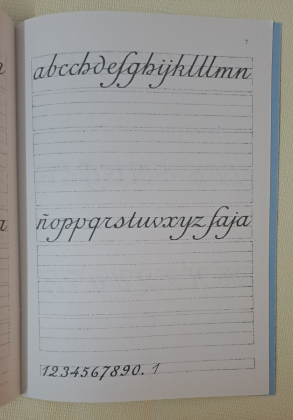 7
abcchdefghijkllmn
ñoppqrstuvxyz faja
1234567890. 1